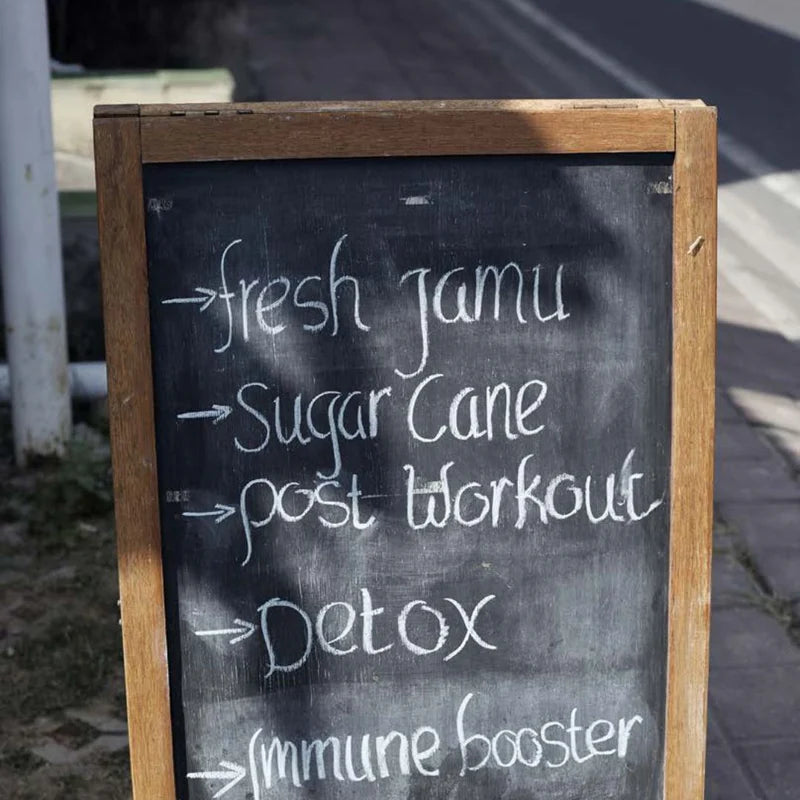 →fresh jamu
→Sugar Cane
→post Workout
→Detox
→Immune booster